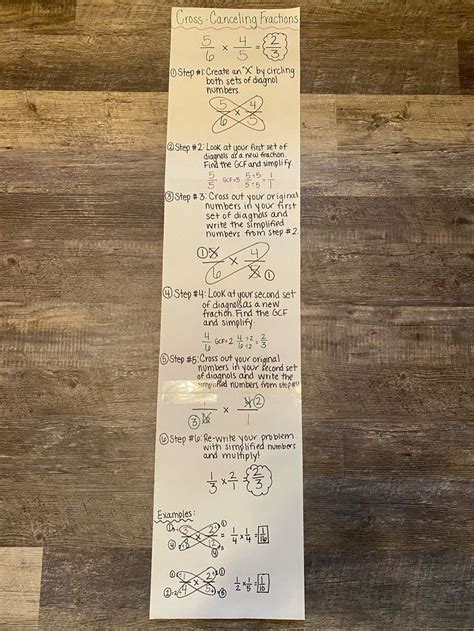 Cross-Canceling Fractions
5/6 x 4/5 = 2/3
① Step #1: Create an "X" by circling
both sets of diagnol
numbers.
5/6 x 4/5
② Step #2: Look at your first set of
diagnols as a new fraction.
Find the GCF and simplify.
5/5 GCF=5 5÷5/5÷5 = 1/1
③ Step #3: Cross out your original
numbers in your first
set of diagnols and
write the simplified
numbers from step #2.
① 5/6 x 4/5 ①
④ Step #4: Look at your second set
of diagnols as a new
fraction. Find the GCF
and simplify.
4/6 GCF=2 4÷2/6÷2 = 2/3
⑤ Step #5: Cross out your original
numbers in your second set
of diagnols and write the
simplified numbers from step #4
1/③6 x 4②/1
⑥ Step #6: Re-write your problem
with simplified numbers
and multiply!
1/3 x 2/1 = 2/3
Examples:
= 1/4 x 1/4 = 1/16
1/2 x 1/5 = 1/10